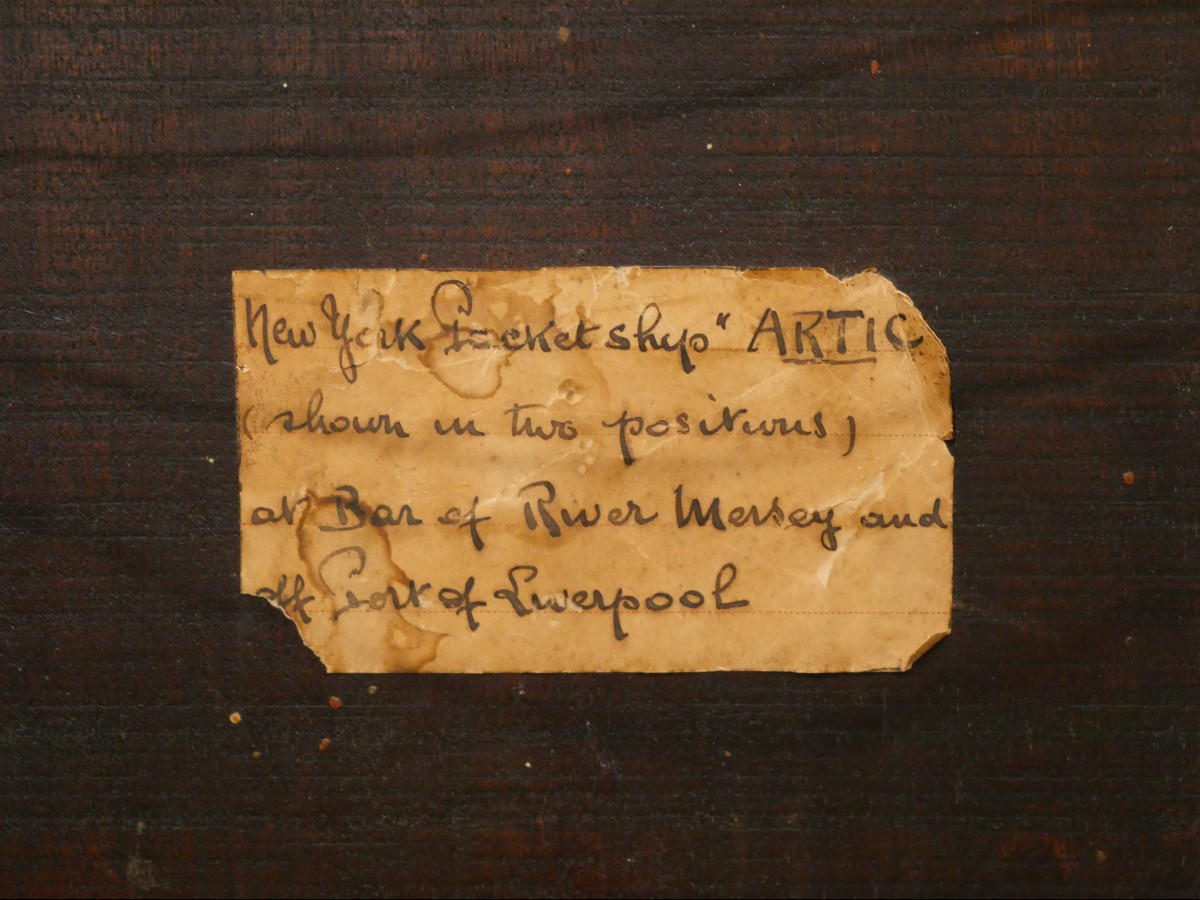 New York Packet ship " ARTIC
(shown in two positions)
at Bar of River Mersey and
off Port of Liverpool